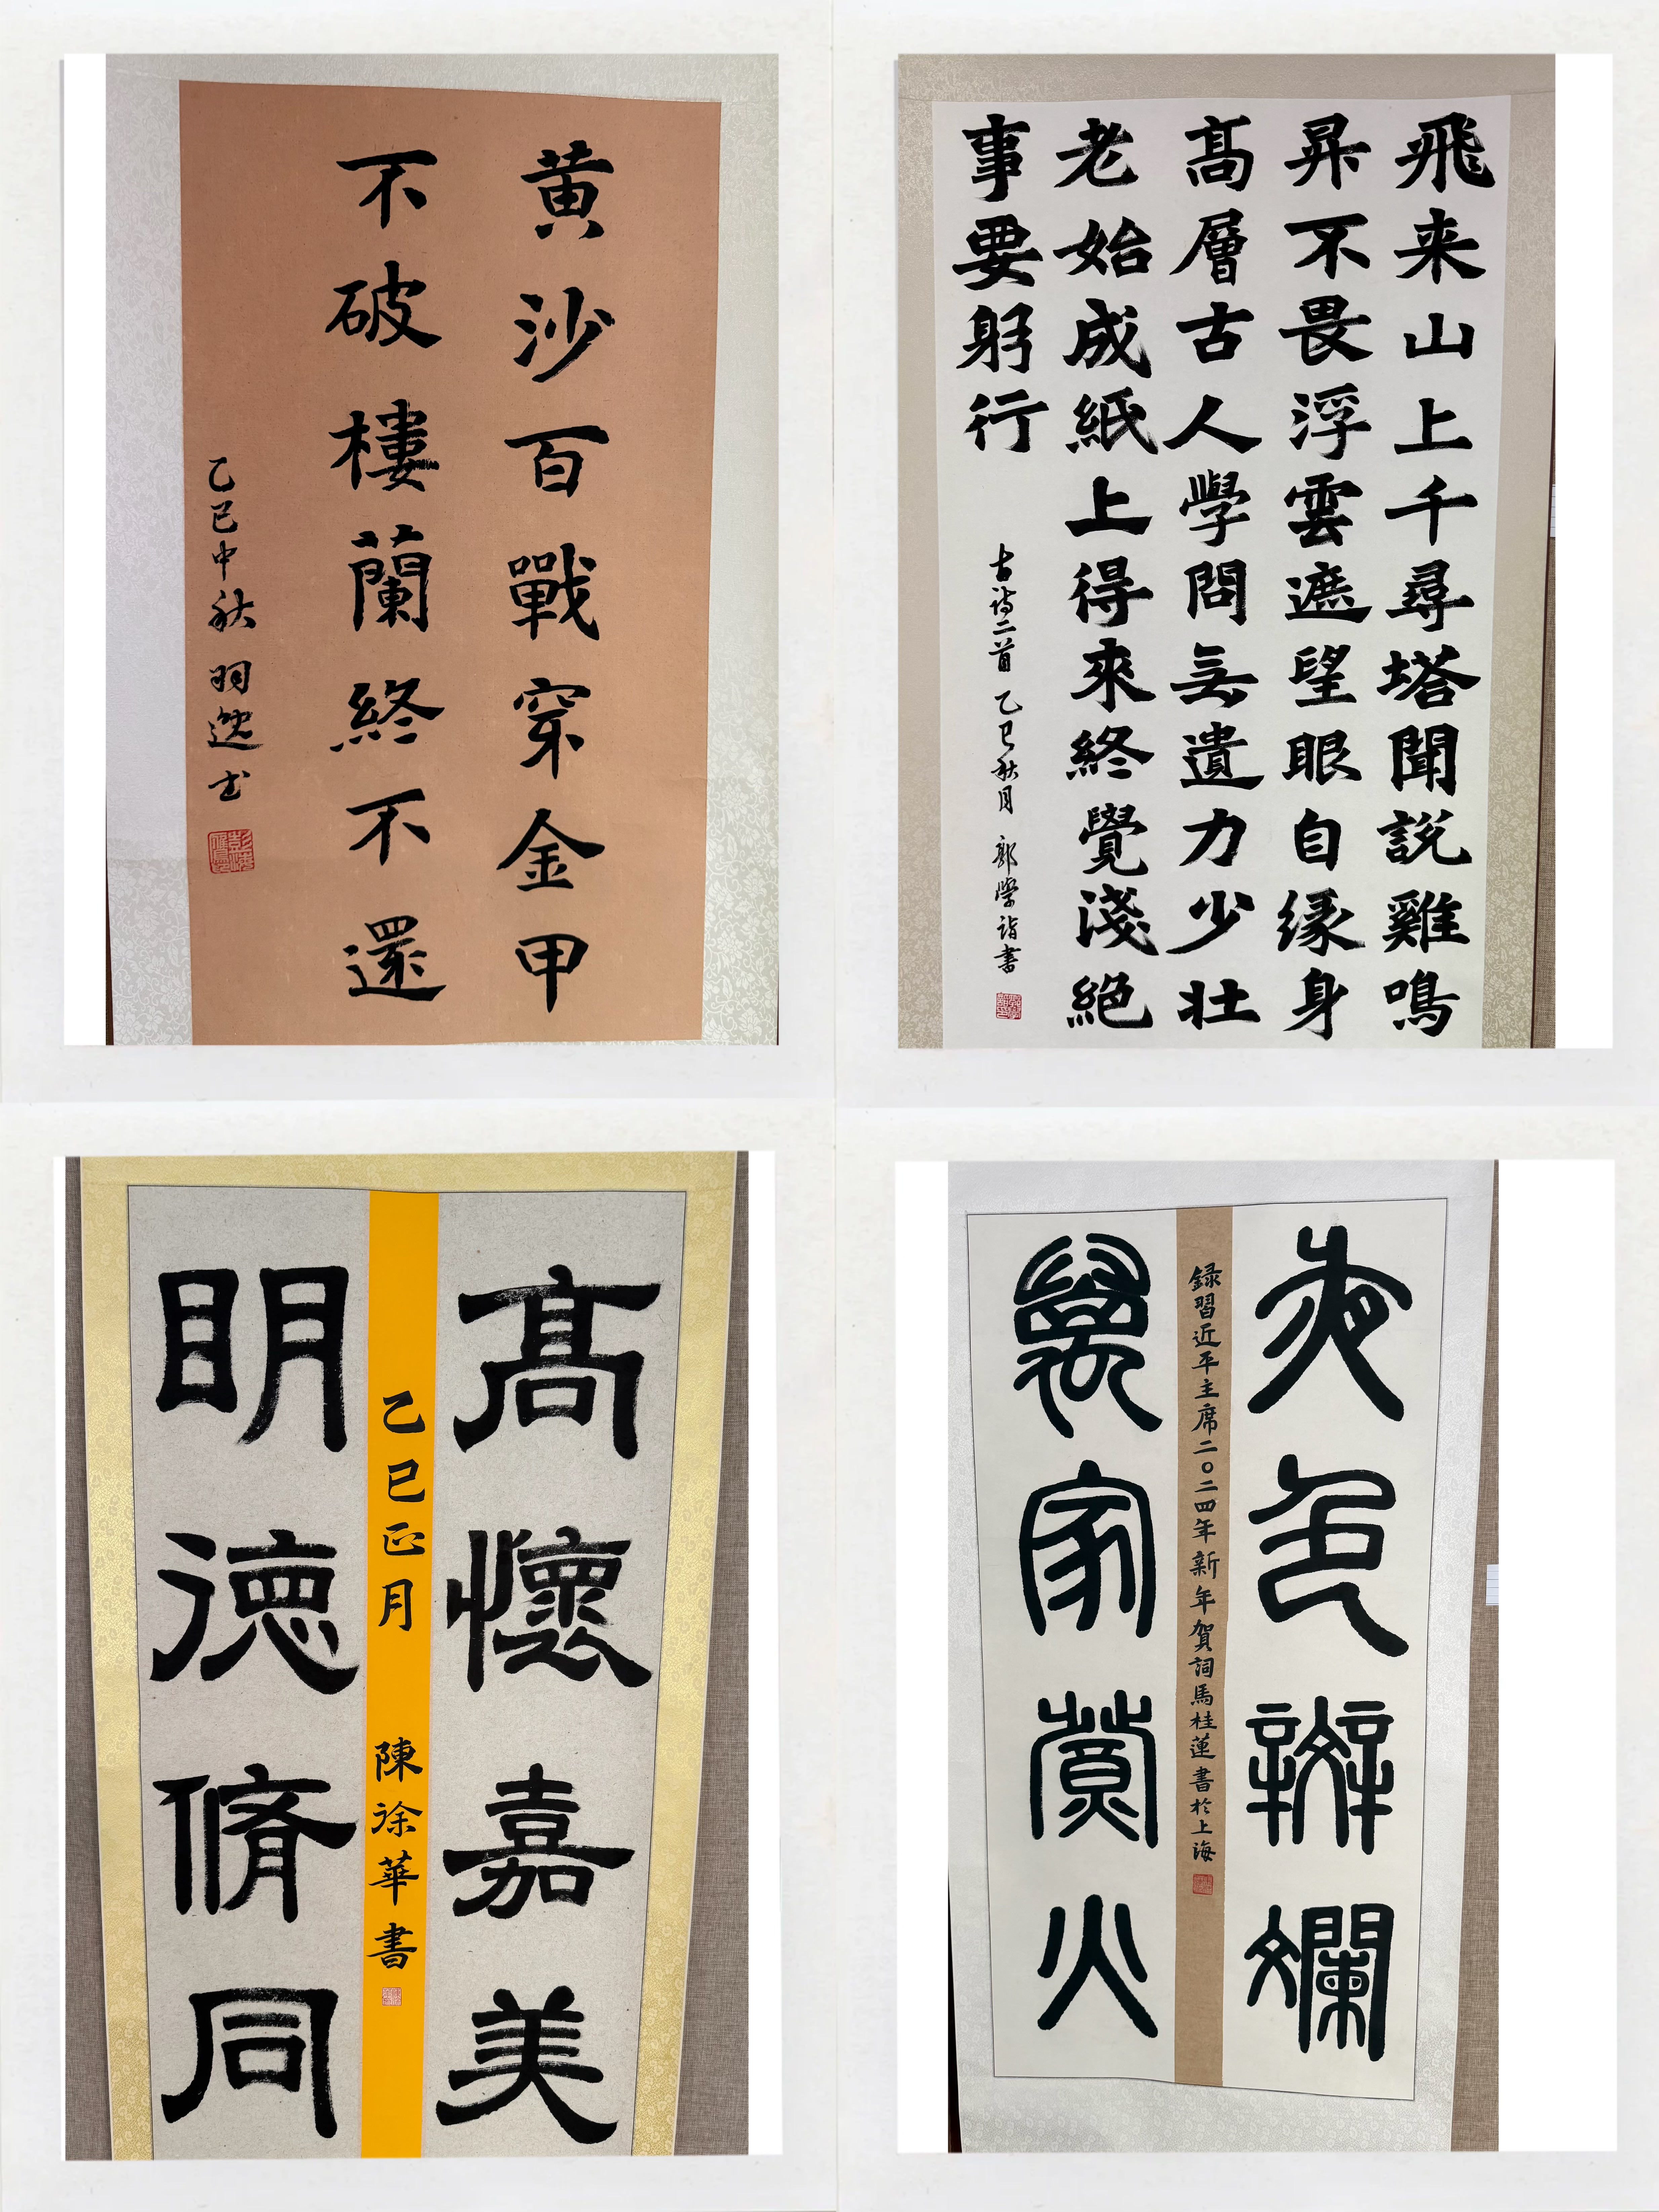 黄沙百戰穿金甲
不破樓蘭終不還
乙巳中秋
飛来山上千尋塔聞説雞鳴
昇不畏浮雲遮望眼自緣身
髙層古人學問無遺力少壯
老始成紙上得來終覺淺絕
事要躬行
古詩二首 乙巳秋月 郭學詣書
髙懷嘉美
乙巳正月 陳涂華書
明德脩同
夜色辬斕
録習近平主席二〇二四年新年賀詞馬桂蓮書於上海
萬家賞火